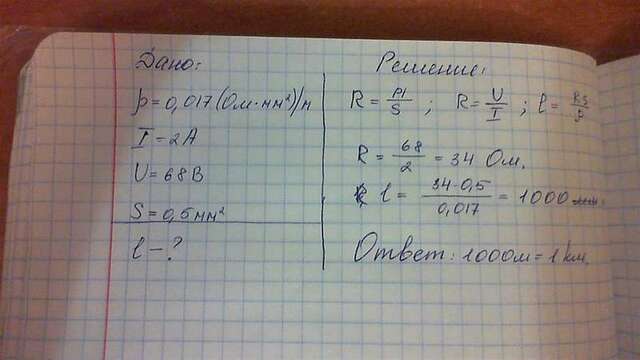 Дано:
ρ = 0,017 (Ом·мм²)/м
I = 2А
U = 68В
S = 0,5мм²
l - ?
Решение:
R = ρl/S ; R = U/I ; l = RS/ρ
R = 68/2 = 34 Ом.
l = 34·0,5/0,017 = 1000
Ответ: 1000м = 1 км.